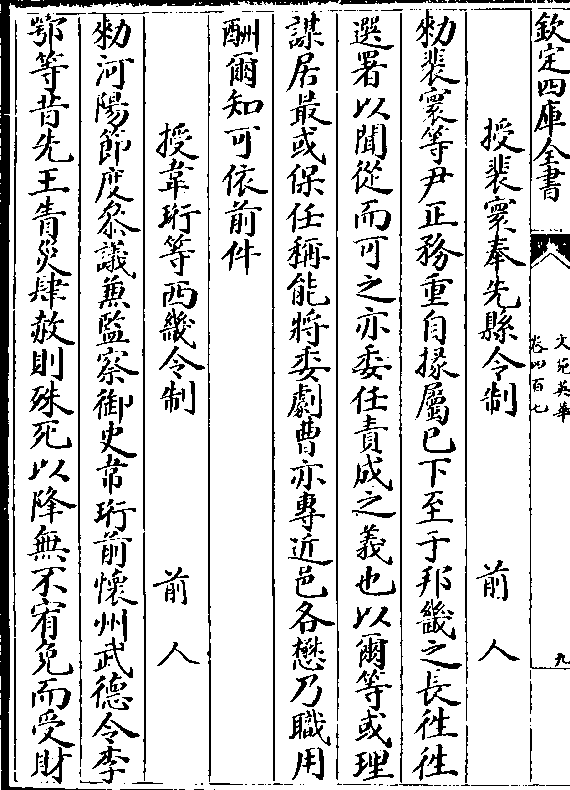 欽定四庫全書
文苑英華
卷四百七
九
授裴寰奉先縣令制　前人
勑裴寰等尹正務重自掾屬已下至于邦畿之長徃徃
選署以聞從而可之亦委任責成之義也以爾等或理
謀居最或保任稱能將委劇曹亦專近邑各懋乃職用
酬爾知可依前件
授韋珩等西畿令制　前人
勑河陽節度叅議兼監察御史韋珩前懷州武德令李
鄂等昔先王眚災肆赦則殊死以降無不宥免而受財